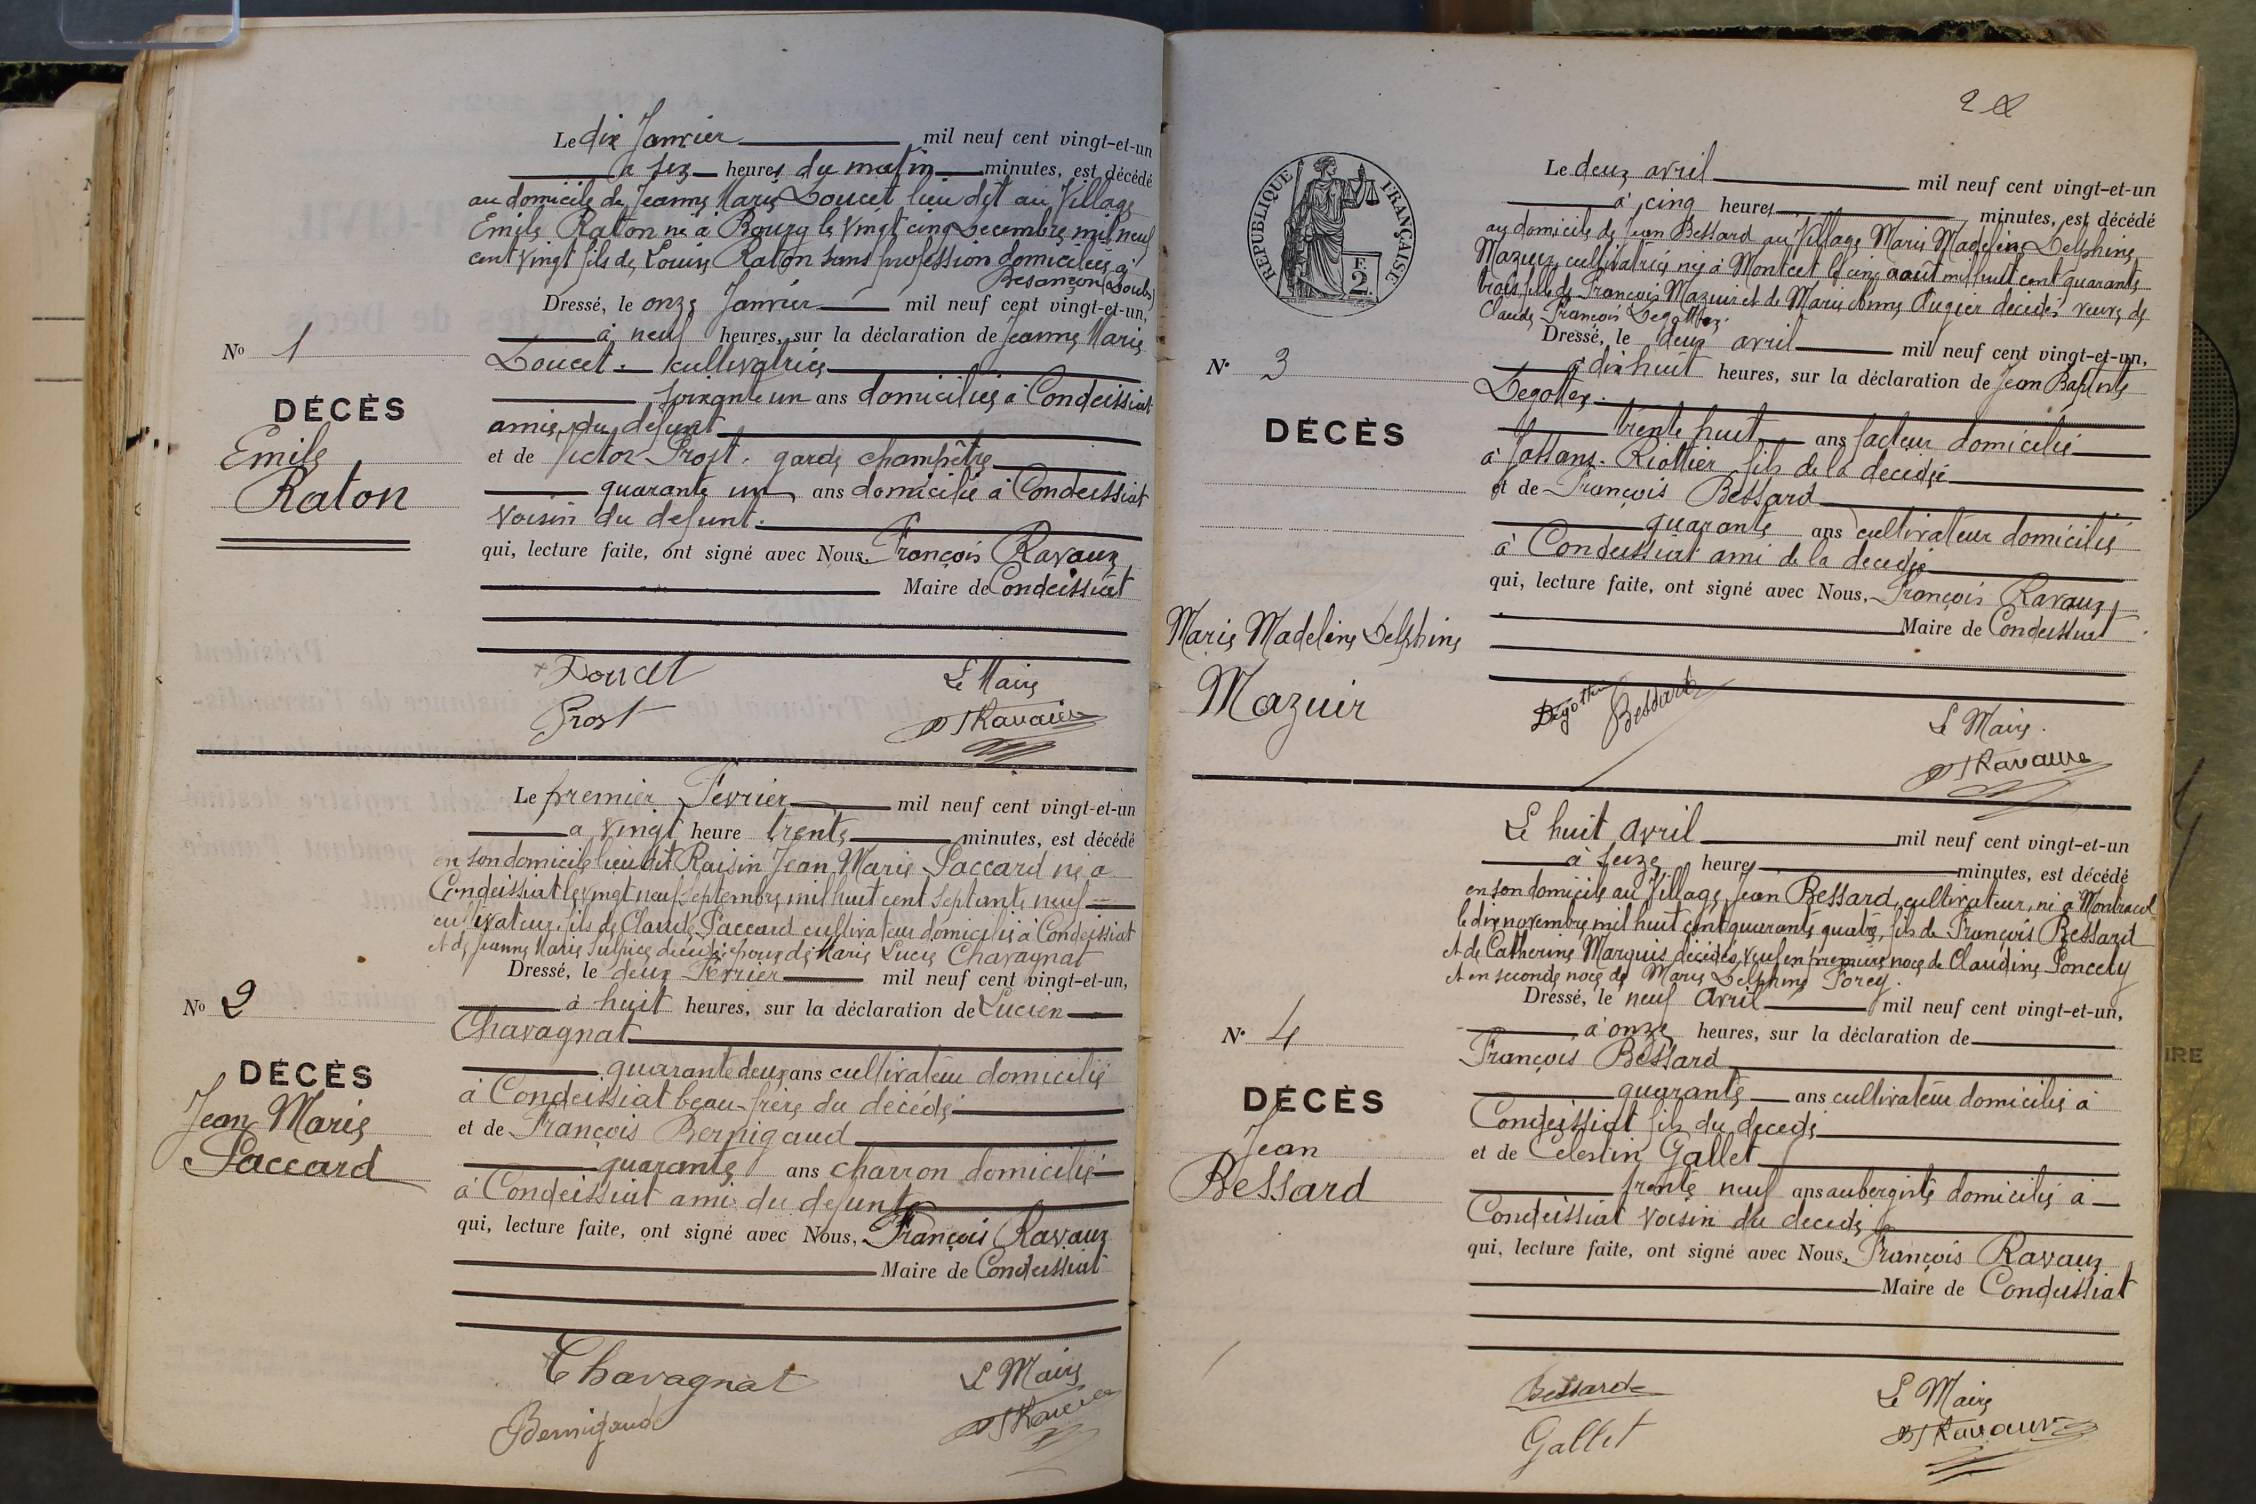 Le dix Janvier mil neuf cent vingt-et-un
a six heures du matin minutes, est décédé
au domicile de Jeanne Marie Doucet lieu dit au Village
Emile Raton né à Bourg le vingt cinq Decembre mil neuf
cent vingt fils de Louise Raton sans profession domiciliée à
Besançon (Doubs)
Dressé, le onze Janvier mil neuf cent vingt-et-un,
à neuf heures, sur la déclaration de Jeanne Marie
Doucet. cultivatrice
soixante un ans domiciliée à Condeissiat
amie du defunt
et de Victor Prost. garde champêtre
quarante un ans domicilié à Condeissiat
voisin du defunt.
qui, lecture faite, ont signé avec Nous. François Ravaux
Maire de Condeissiat
No 1
DÉCÈS
Emile
Raton
Doucet
Prost
Le Maire
Ravaux
Le premier Fevrier mil neuf cent vingt-et-un
a vingt heure trente minutes, est décédé
en son domicile lieu dit Raisin Jean Marie Paccard né a
Condeissiat le vingt neuf Septembre mil huit cent septante neuf
cultivateur, fils de Claude Paccard cultivateur domicilié à Condeissiat
et de Jeanne Marie Sulpice décédée époux de Marie Lucie Chavagnat
Dressé, le deux Fevrier mil neuf cent vingt-et-un,
à huit heures, sur la déclaration de Lucien
Chavagnat
quarante deux ans cultivateur domicilié
à Condeissiat beau-frère du décédé
et de François Bernigaud
quarante ans charron domicilié
à Condeissiat ami du defunt
qui, lecture faite, ont signé avec Nous, François Ravaux
Maire de Condeissiat
No 2
DÉCÈS
Jean Marie
Paccard
Chavagnat
Bernigaud
Le Maire
Ravaux
2
RÉPUBLIQUE FRANÇAISE
F.
2.
Le deux avril mil neuf cent vingt-et-un
à cinq heures minutes, est décédé
au domicile de Jean Bessard au Village Marie Madeleine Delphine
Mazuir cultivatrice née à Montcet le cinq août mil huit cent quarante
trois fille de François Mazuir et de Marie Anne Augier décédés veuve de
Claude François Degottex.
Dressé, le deux avril mil neuf cent vingt-et-un,
à dix huit heures, sur la déclaration de Jean Baptiste
Degottex.
trente huit ans facteur domicilié
à Jassans-Riottier fils de la decedée
et de François Bessard
quarante ans cultivateur domicilié
à Condeissiat ami de la decedée
qui, lecture faite, ont signé avec Nous, François Ravaux
Maire de Condeissiat
No 3
DÉCÈS
Marie Madeleine Delphine
Mazuir
Degottex
Bessard
Le Maire.
Ravaux
Le huit avril mil neuf cent vingt-et-un
à seize heures minutes, est décédé
en son domicile au Village Jean Bessard, cultivateur, né à Montracol
le dix novembre mil huit cent quarante quatre, fils de François Bessard
et de Catherine Marquis décédés, veuf en premiere noce de Claudine Poncety
et en seconde noce de Marie Delphine Forey.
Dressé, le neuf Avril mil neuf cent vingt-et-un,
à onze heures, sur la déclaration de
François Bessard
quarante ans cultivateur domicilié à
Condeissiat fils du decedé
et de Celestin Gallet
trente neuf ans aubergiste domicilié à
Condeissiat voisin du decedé
qui, lecture faite, ont signé avec Nous, François Ravaux
Maire de Condeissiat
No 4
DÉCÈS
Jean
Bessard
Bessard
Gallet
Le Maire
Ravaux